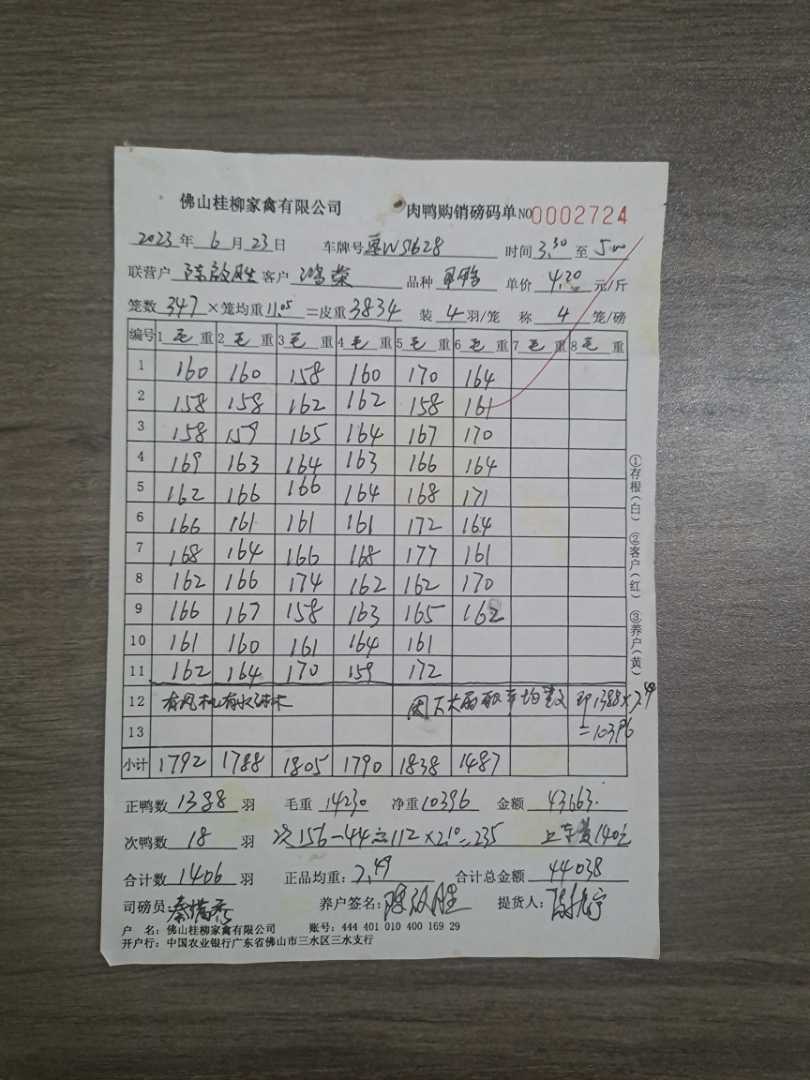 佛山桂柳家禽有限公司 肉鸭购销磅码单 NO 0002724
2023年 6月 23日 车牌号 粤W5628 时间 3.30 至 5:00
联营户 陈啟胜 客户 鸿荣 品种 单价 4.20 元/斤
笼数 347 ×笼均重 11.05 =皮重 3834 装 4 羽/笼 称 4 笼/磅
编号 1 毛 重 2 毛 重 3 毛 重 4 毛 重 5 毛 重 6 毛 重 7 毛 重 8 毛 重
1 160 160 158 160 170 164
2 158 158 162 162 158 161
3 158 159 165 164 167 170
4 169 163 164 163 166 164
5 162 166 166 164 168 171
6 166 161 161 161 172 164
7 168 164 166 168 177 161
8 162 166 174 162 162 170
9 166 167 158 163 165 162
10 161 160 161 164 161
11 162 164 170 159 172
12 有风机有水淋 因下大雨取平均数 即1388×7.49
13 =10396
小计 1792 1788 1805 1790 1838 1487
正鸭数 1388 羽 毛重 14230 净重 10396 金额 43663.
次鸭数 18 羽 次156-44=112×2.10=235 上车费140元
合计数 1406 羽 正品均重: 7.49 合计总金额 44038
司磅员: 养户签名: 陈啟胜 提货人:
户 名: 佛山桂柳家禽有限公司 账号: 444 401 010 400 169 29
开户行: 中国农业银行广东省佛山市三水区三水支行
①存根(白) ②客户(红) ③养户(黄)